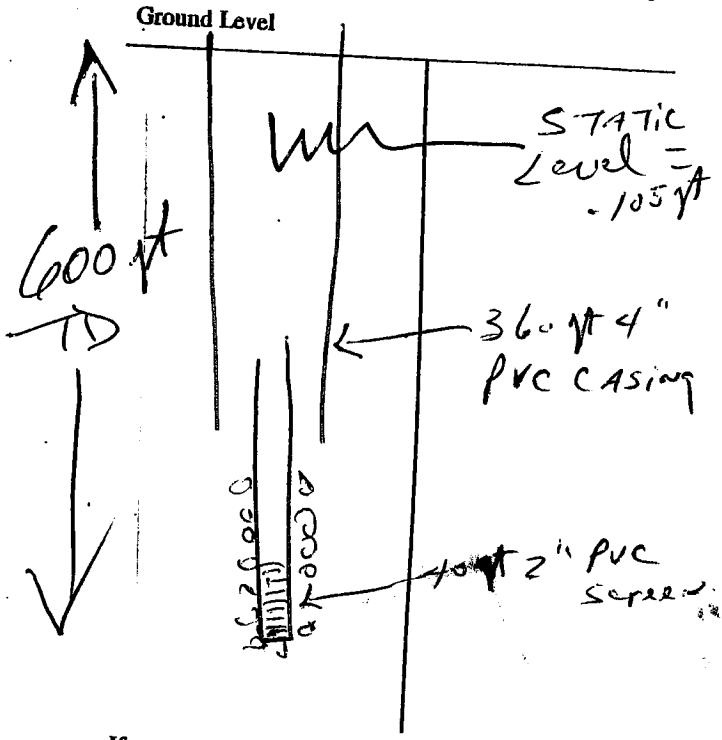 Ground Level
STATIC
Level =
.105 ft
600 ft
TD
360 ft 4"
PVC CASing
40 ft 2" PVC
screen